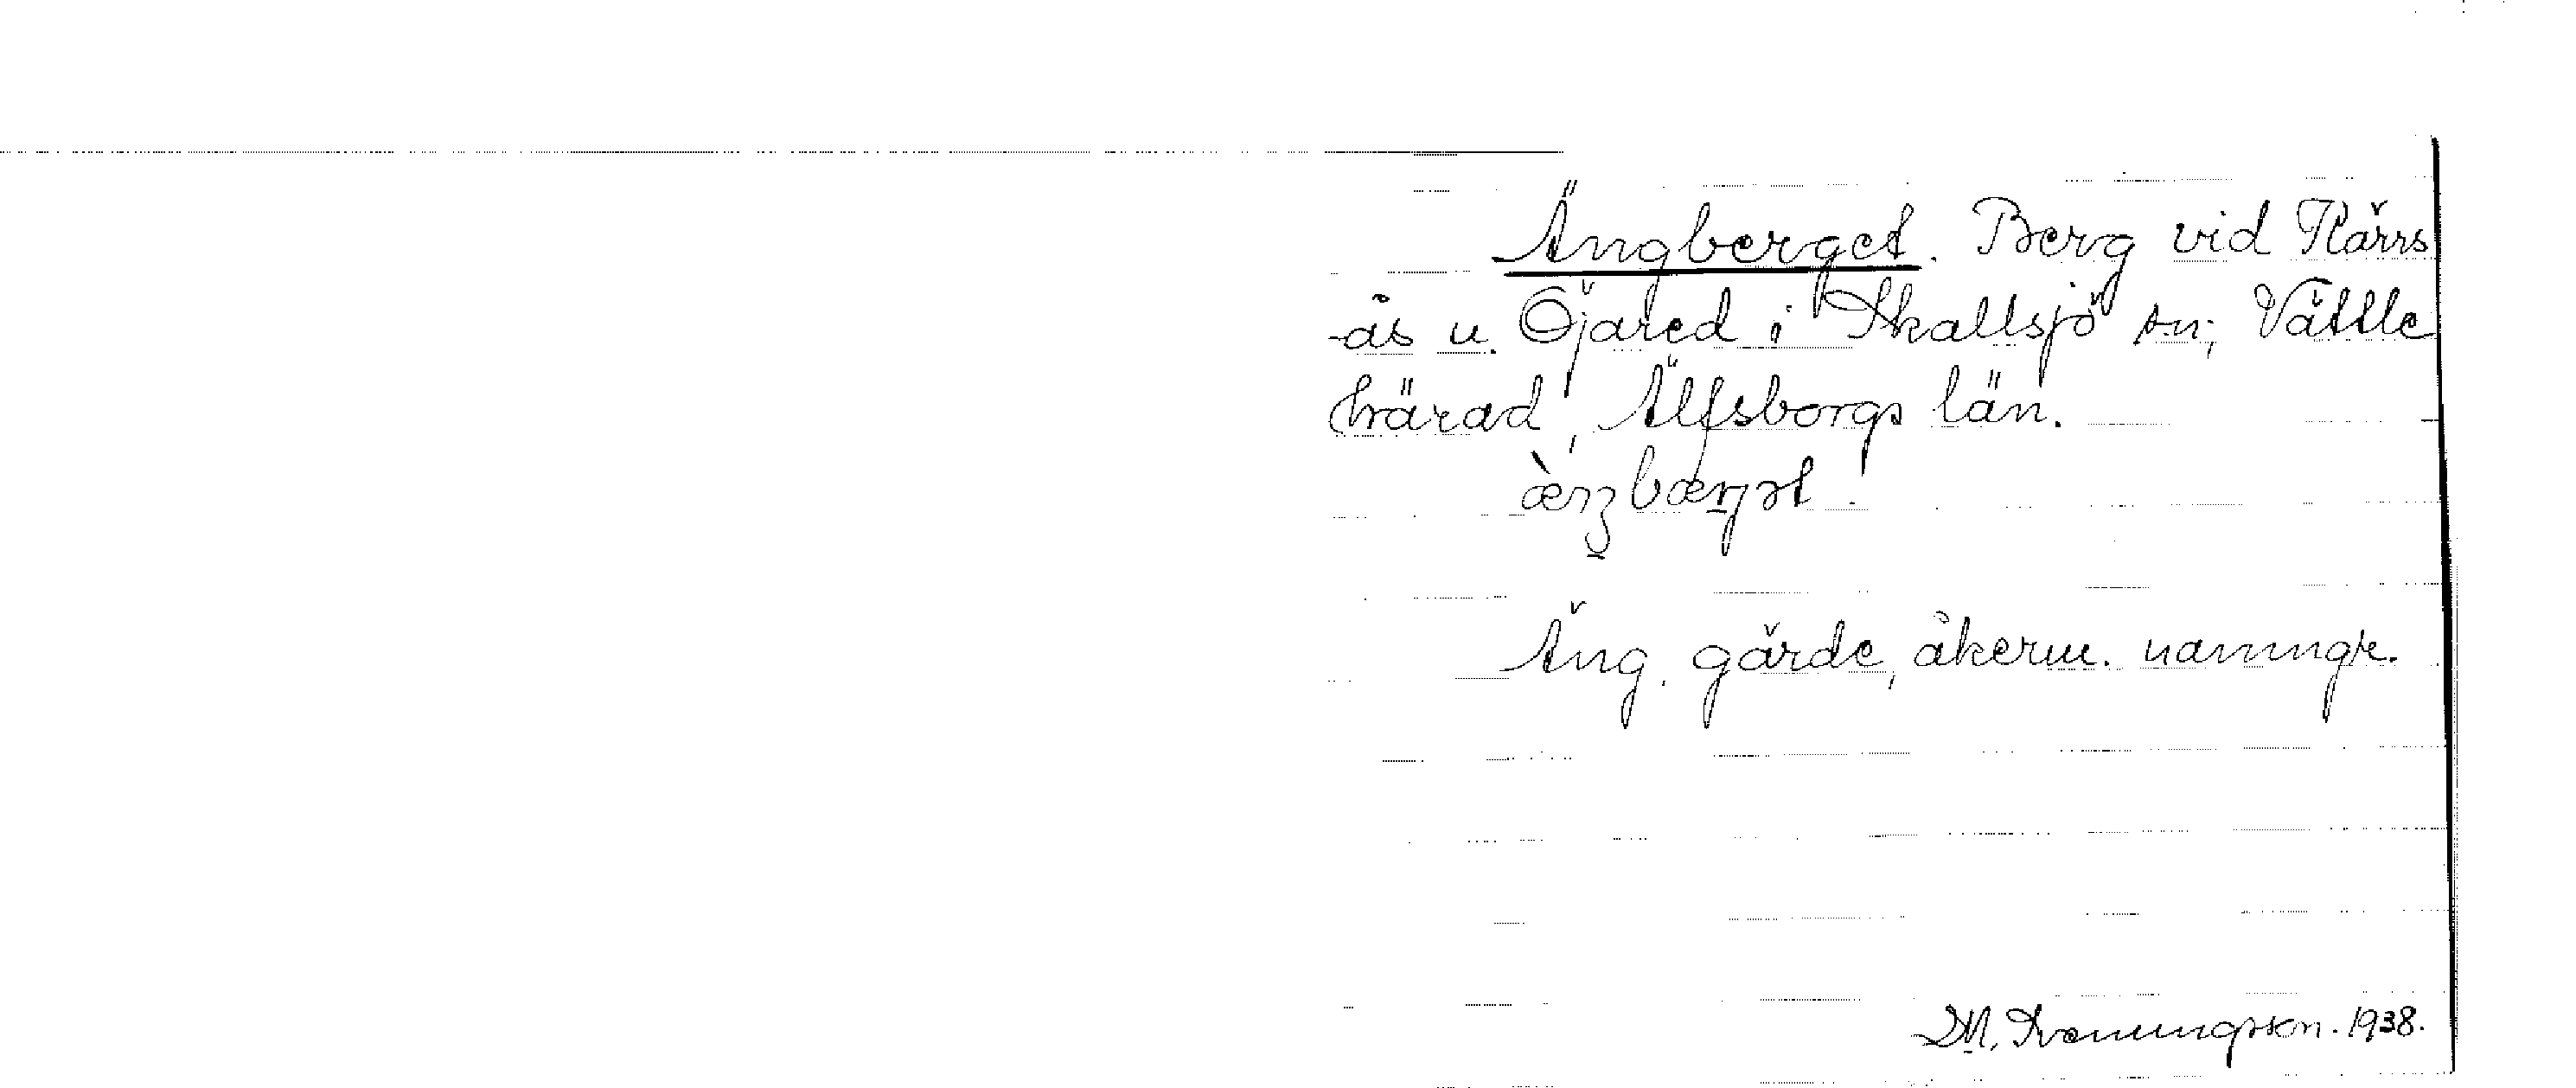 Ängberget. Berg vid Kärrs
-ås u. Öjared i Skallsjö sn, Vättle
härad, Älfsborgs län.
Äng. gärde, åkerm.
M. Svenungsson. 1938.